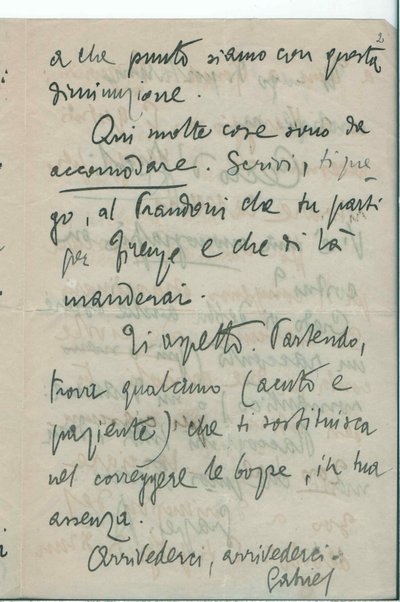 2
a che punto siamo con questa
diminuzione.
Qui molte cose sono da
accomodare. Scrivi, ti pre
go, al Trandoni che tu parti
per Firenze e che di là
manderai.
Ti aspetto. Partendo,
trova qualcuno (acuto e
paziente) che ti sostituisca
nel correggere le bozze, in tua
assenza.
Arrivederci, arrivederci.
Gabriel